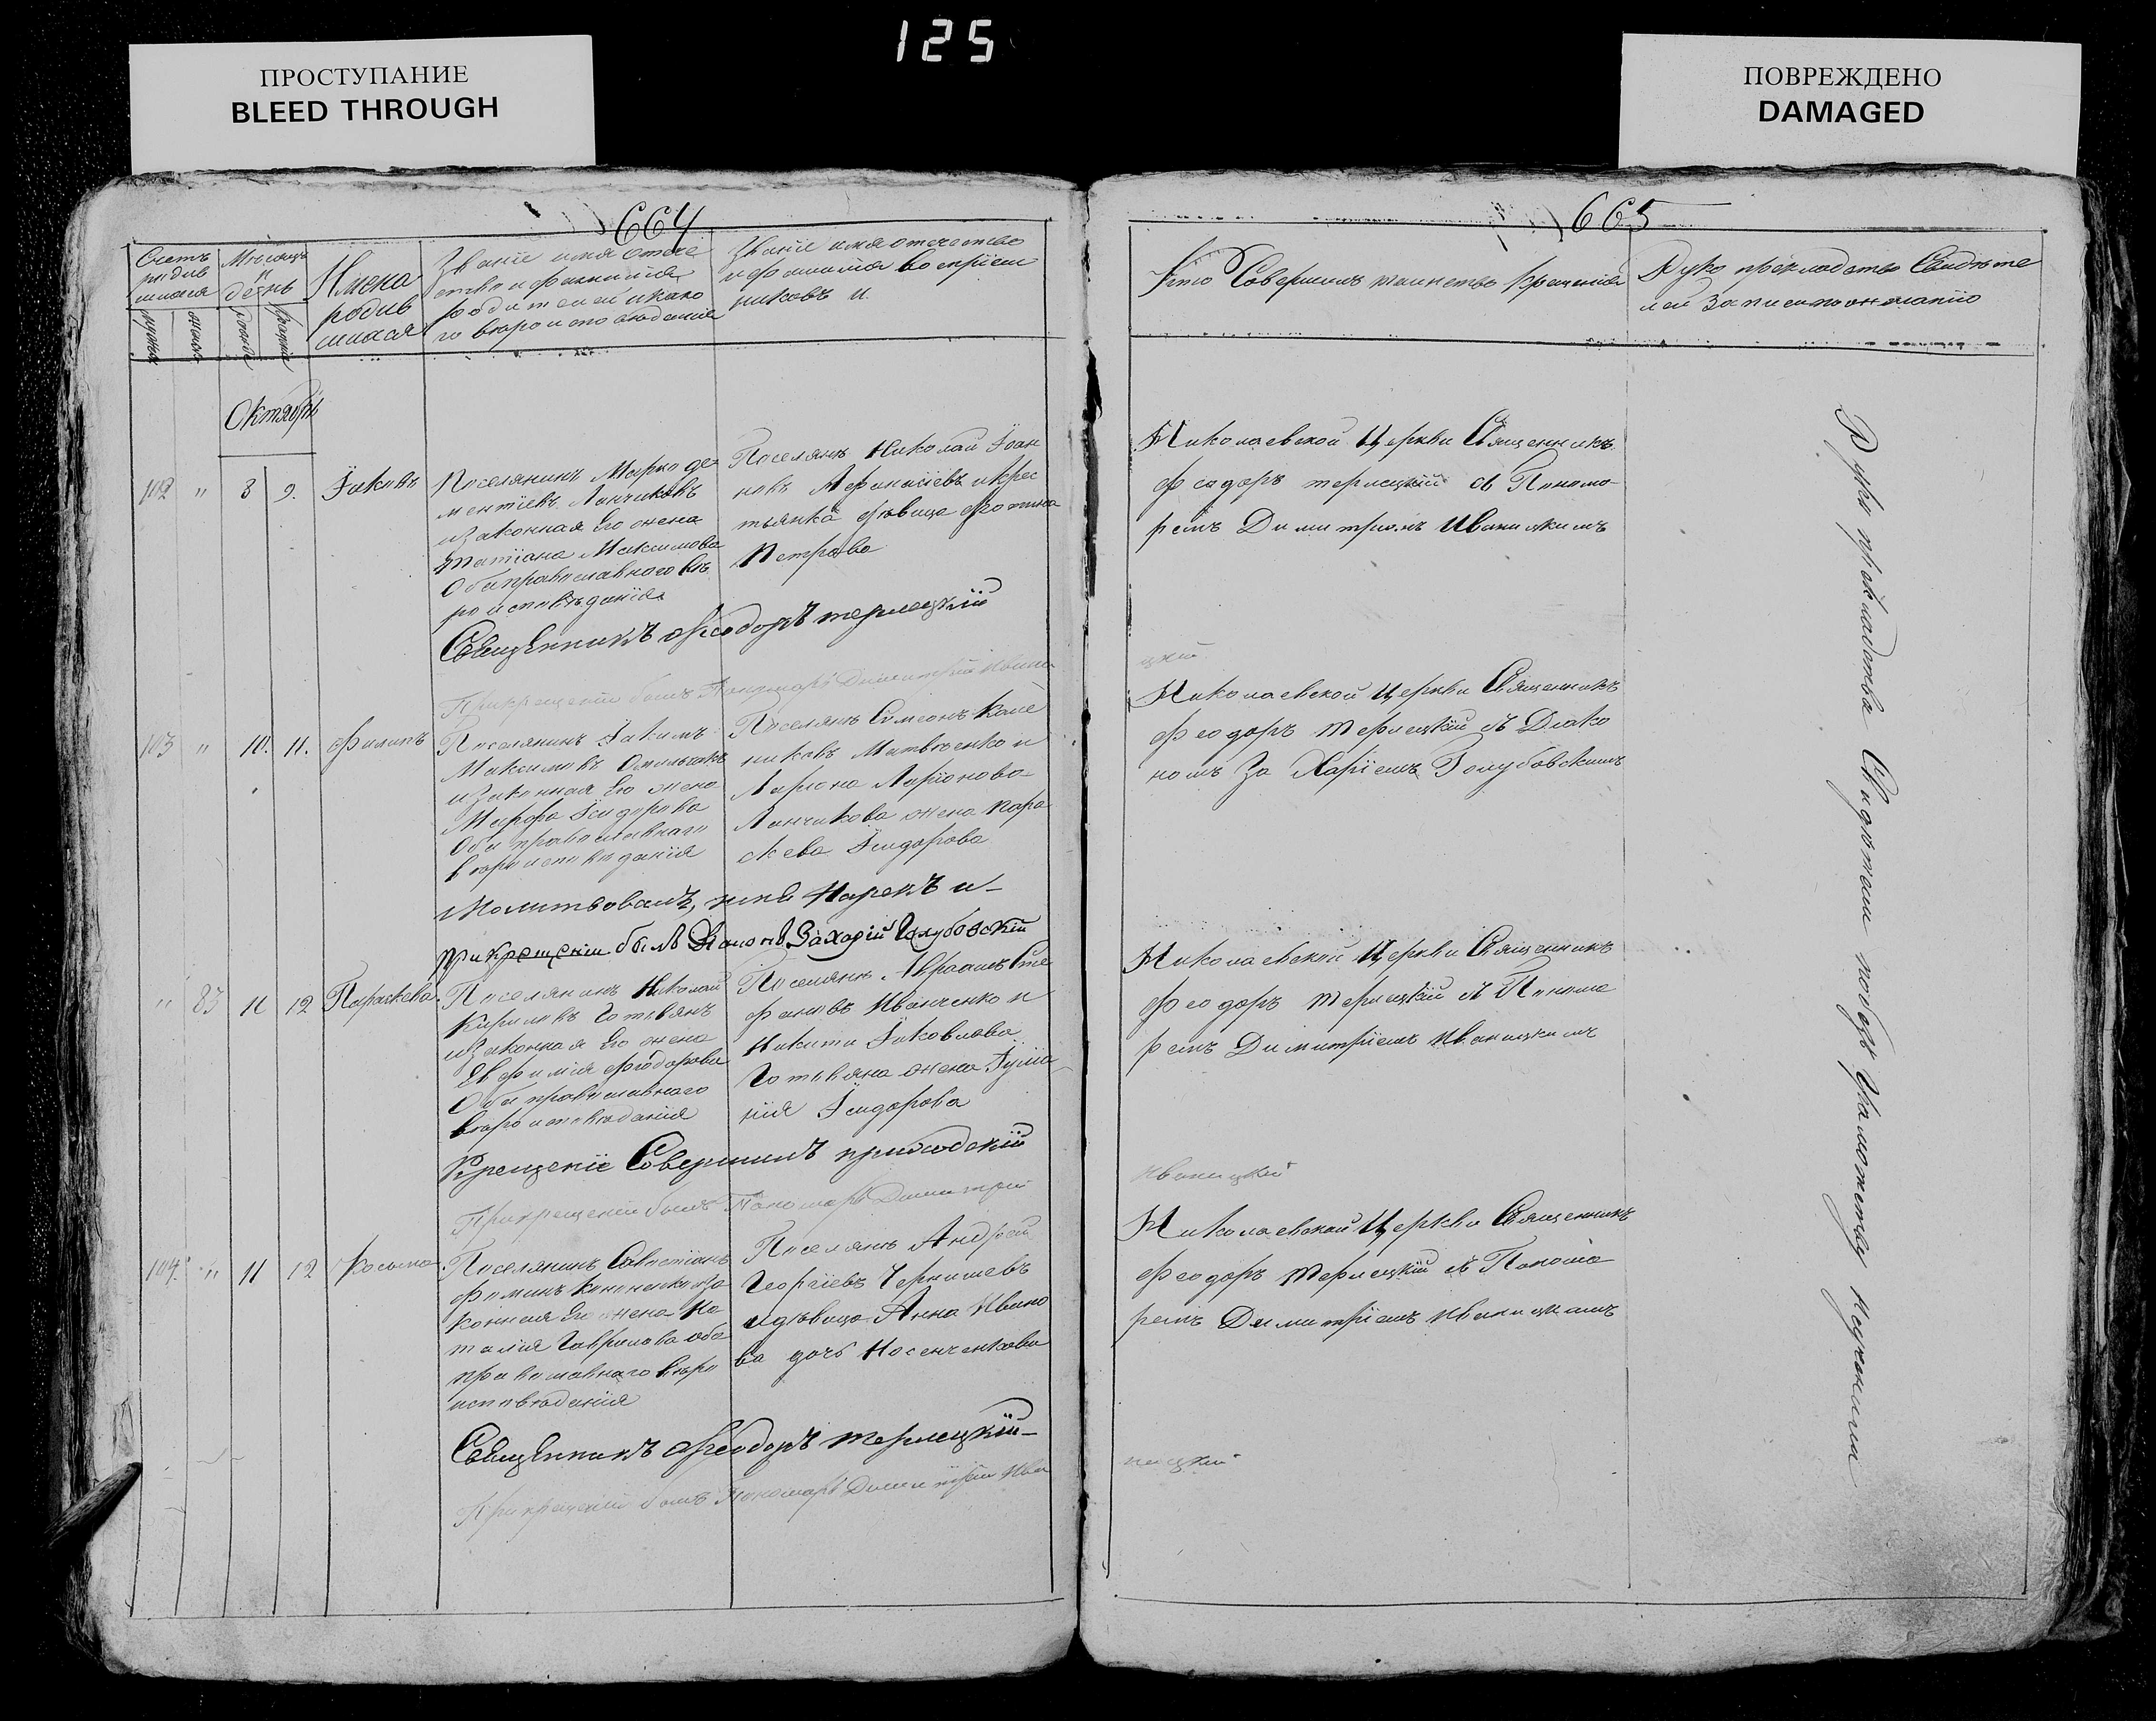 125
ПРОСТУПАНИЕ
BLEED THROUGH
ПОВРЕЖДЕНО
DAMAGED
664
Счетъ
родив
шихся
Мѣсяцъ
и
день
Имена
родив
шихся
Званіе имя отече
ство и фамилія
родителей и како
го вѣроисповѣданія
Званіе имя отечество
и фамилія воспріем
никовъ
Октябрь
102 " 8 9. Іаковъ
Поселянинъ Марко де
ментіевъ Ланчиковъ
и Законная Его жена
татіана Максимова
Оба православнаго вѣ
роисповѣданія
Поселянъ Николай Іоан
новъ Афанасіевъ и Крес
тьянка дѣвица Фотина
Петрова
СвящЕнникъ Феодоръ терлецкій
При крещеніи былъ Пономарь Димитрій Ивани
103 " 10. 11. Филипъ
Поселянинъ Іакимъ
Максимовъ
и Законная Его жена
Марфа Ісидорова
Оба православнаго
вѣроисповѣданія
Поселянъ Симеонъ Кале
никовъ Матвѣенко и
Лариона Ларіонова
Ланчикова жена Пара
скева Ісидорова
Молитвовалъ, имя Нарекъ и
при крещеніи былъ Діаконъ Захарій Голубовскій
" 83 11 12 Параскева
Поселянинъ Николай
Кириловъ Готвянъ
и Законная Его жена
Евфимія Фіодорова
Оба православнаго
вѣроисповѣданія
Поселянъ Авраамъ Сте
фановъ Иванченко и
Никиты Іаковлева
Готвяна жена Іулiа
нія Ісидорова
Крещеніе Совершилъ приходскій
При крещеніи былъ Пономарь Димитрій
104. " 11 12 Косьма
Поселянинъ Савастіанъ
Фоминъ Кононенко и За
конная Его жена На
талія Гаврилова оба
православнаго вѣро
исповѣданія
Поселянъ Андрей
Георгіевъ Чернышевъ
и дѣвица Анна Ивано
ва дочь Носенченкова
СвящЕнникъ Феодоръ терлецкій
При крещеніи былъ Пономарь Димитрій Ива
665
Кто Совершилъ таинство Крещенія
Руко прикладство Свидѣте
лей Записи по желанію
Николаевской Церкви Священникъ
Феодоръ терлецкій съ Понома
ремъ Димитріемъ Иваницкимъ
цкій
Николаевской Церкви Священникъ
Феодоръ терлецкій съ Діако
номъ Захаріемъ Голубовскимъ
Николаевской Церкви Священникъ
Феодоръ терлецкій съ Понома
ремъ Димитріемъ Иваницкимъ
Иваницкій
Николаевской Церкви Священникъ
Феодоръ терлецкій съ Понома
ремъ Димитріемъ Иваницкимъ
ницкій
Руко прикладства Свидѣтели